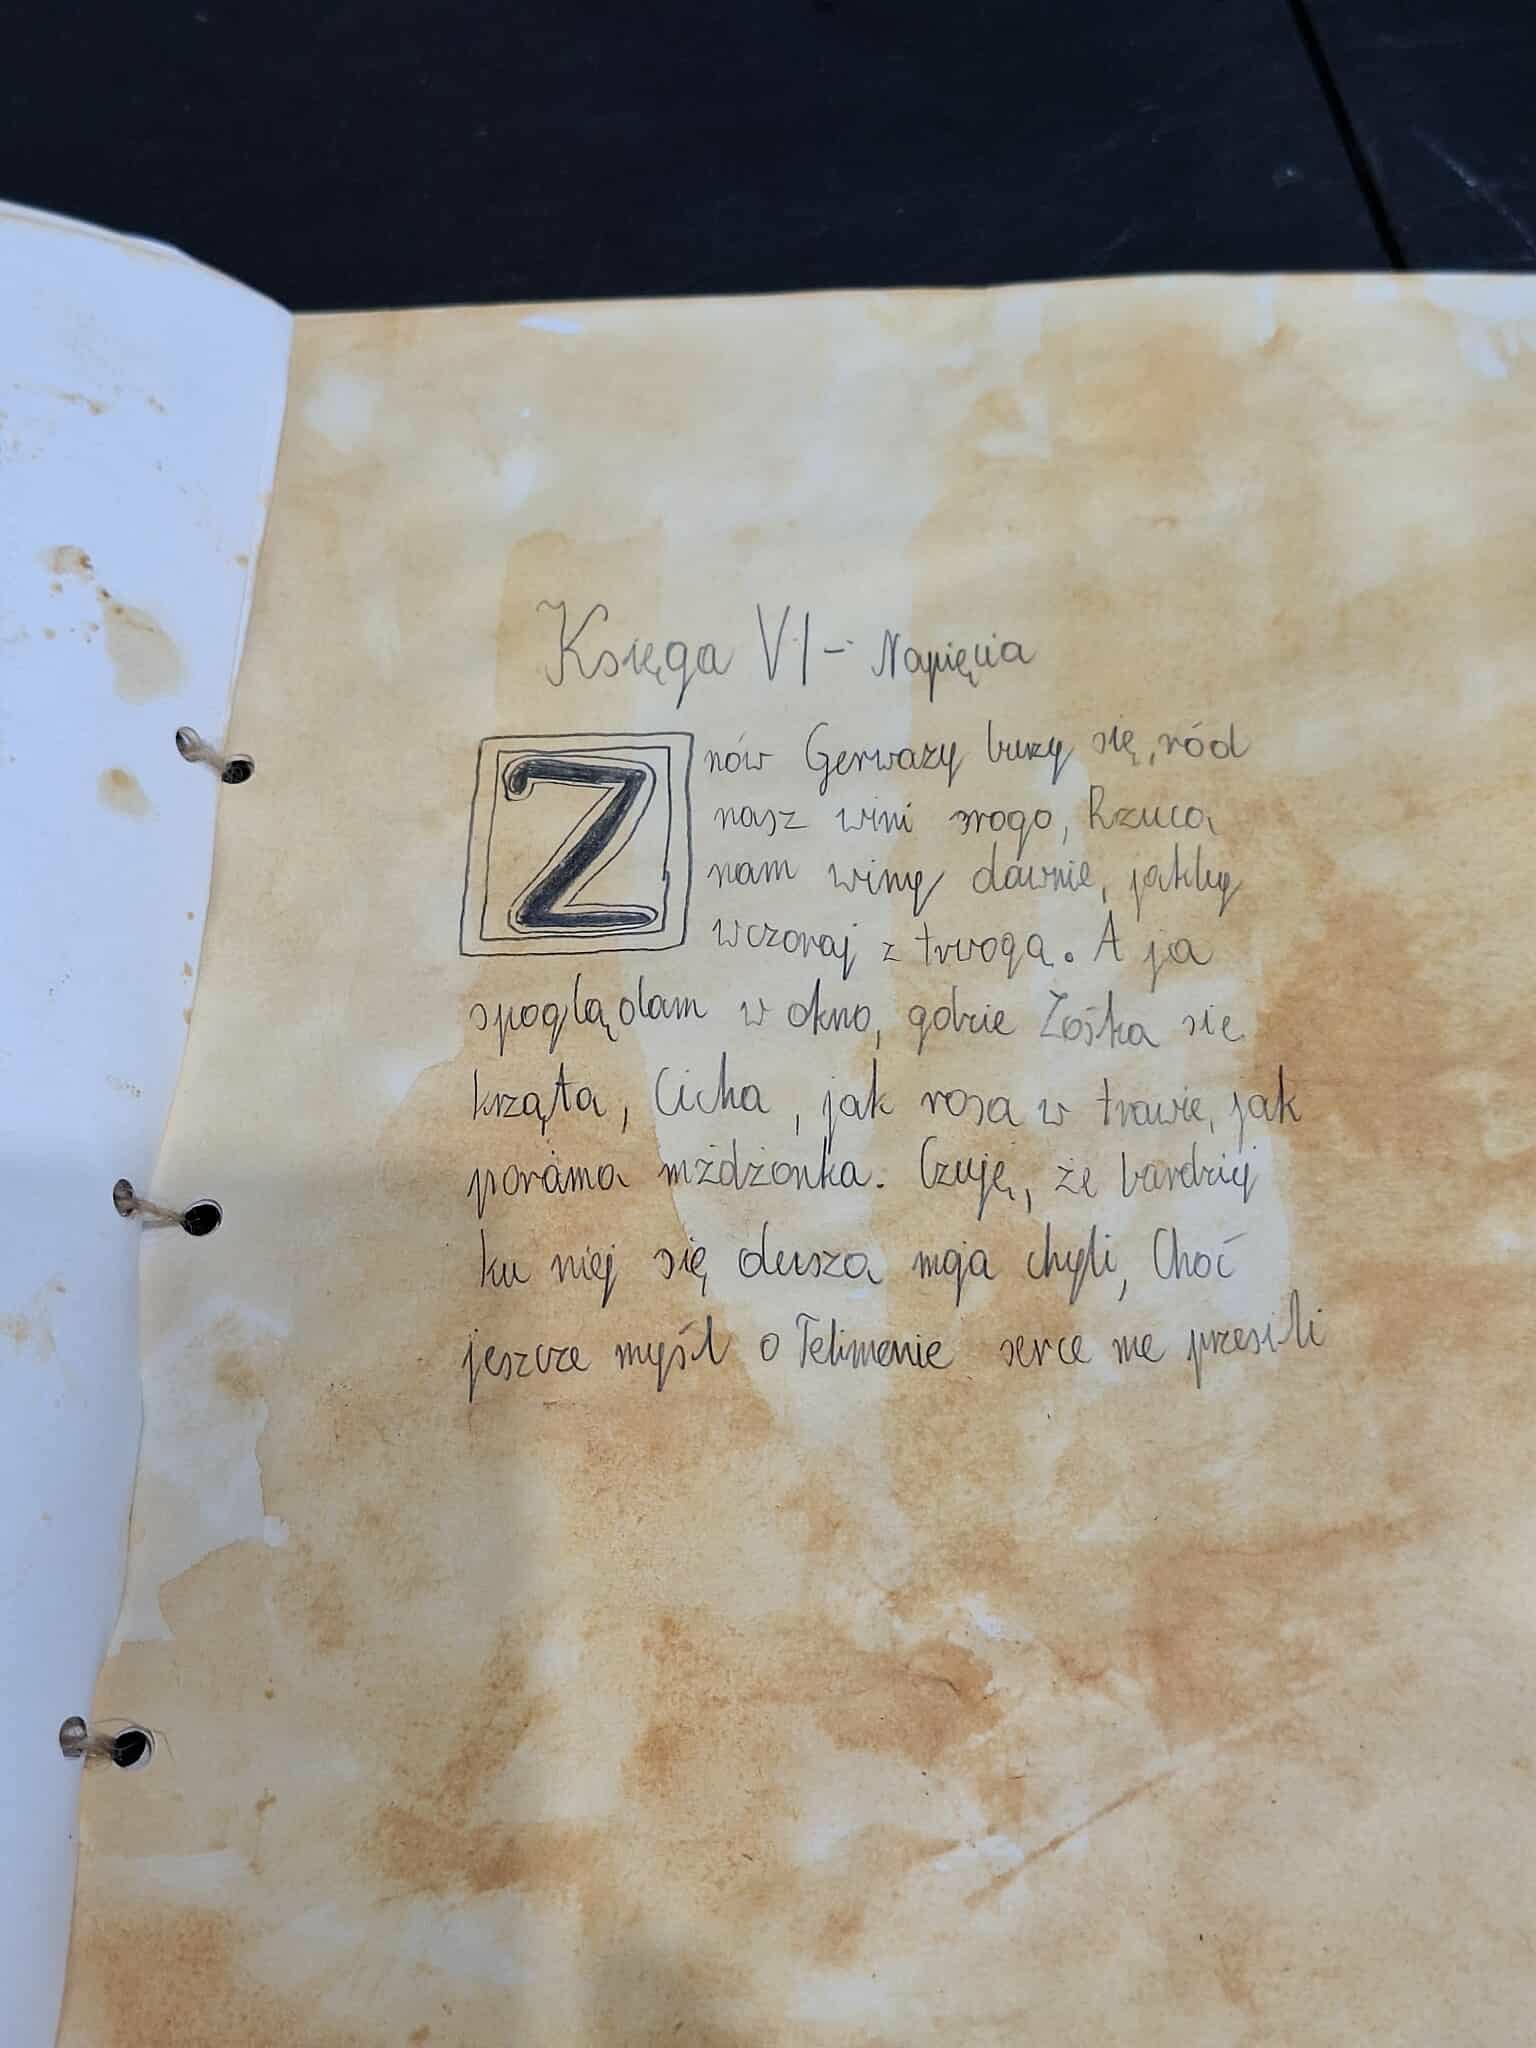 Księga VI - Napięcia
Znów Gerwazy burzy się, ród
nasz wini srogo, Rzuca
nam winy dawnie, jakby
wczoraj z trwogą. A ja
spoglądam w okno, gdzie Zośka się
krząta, Cicha, jak rosa w trawie, jak
poranna mżdżonka. Czuję, że bardziej
ku niej się dusza moja chyli, Choć
jeszcze myśl o Telimenie serce me przesili